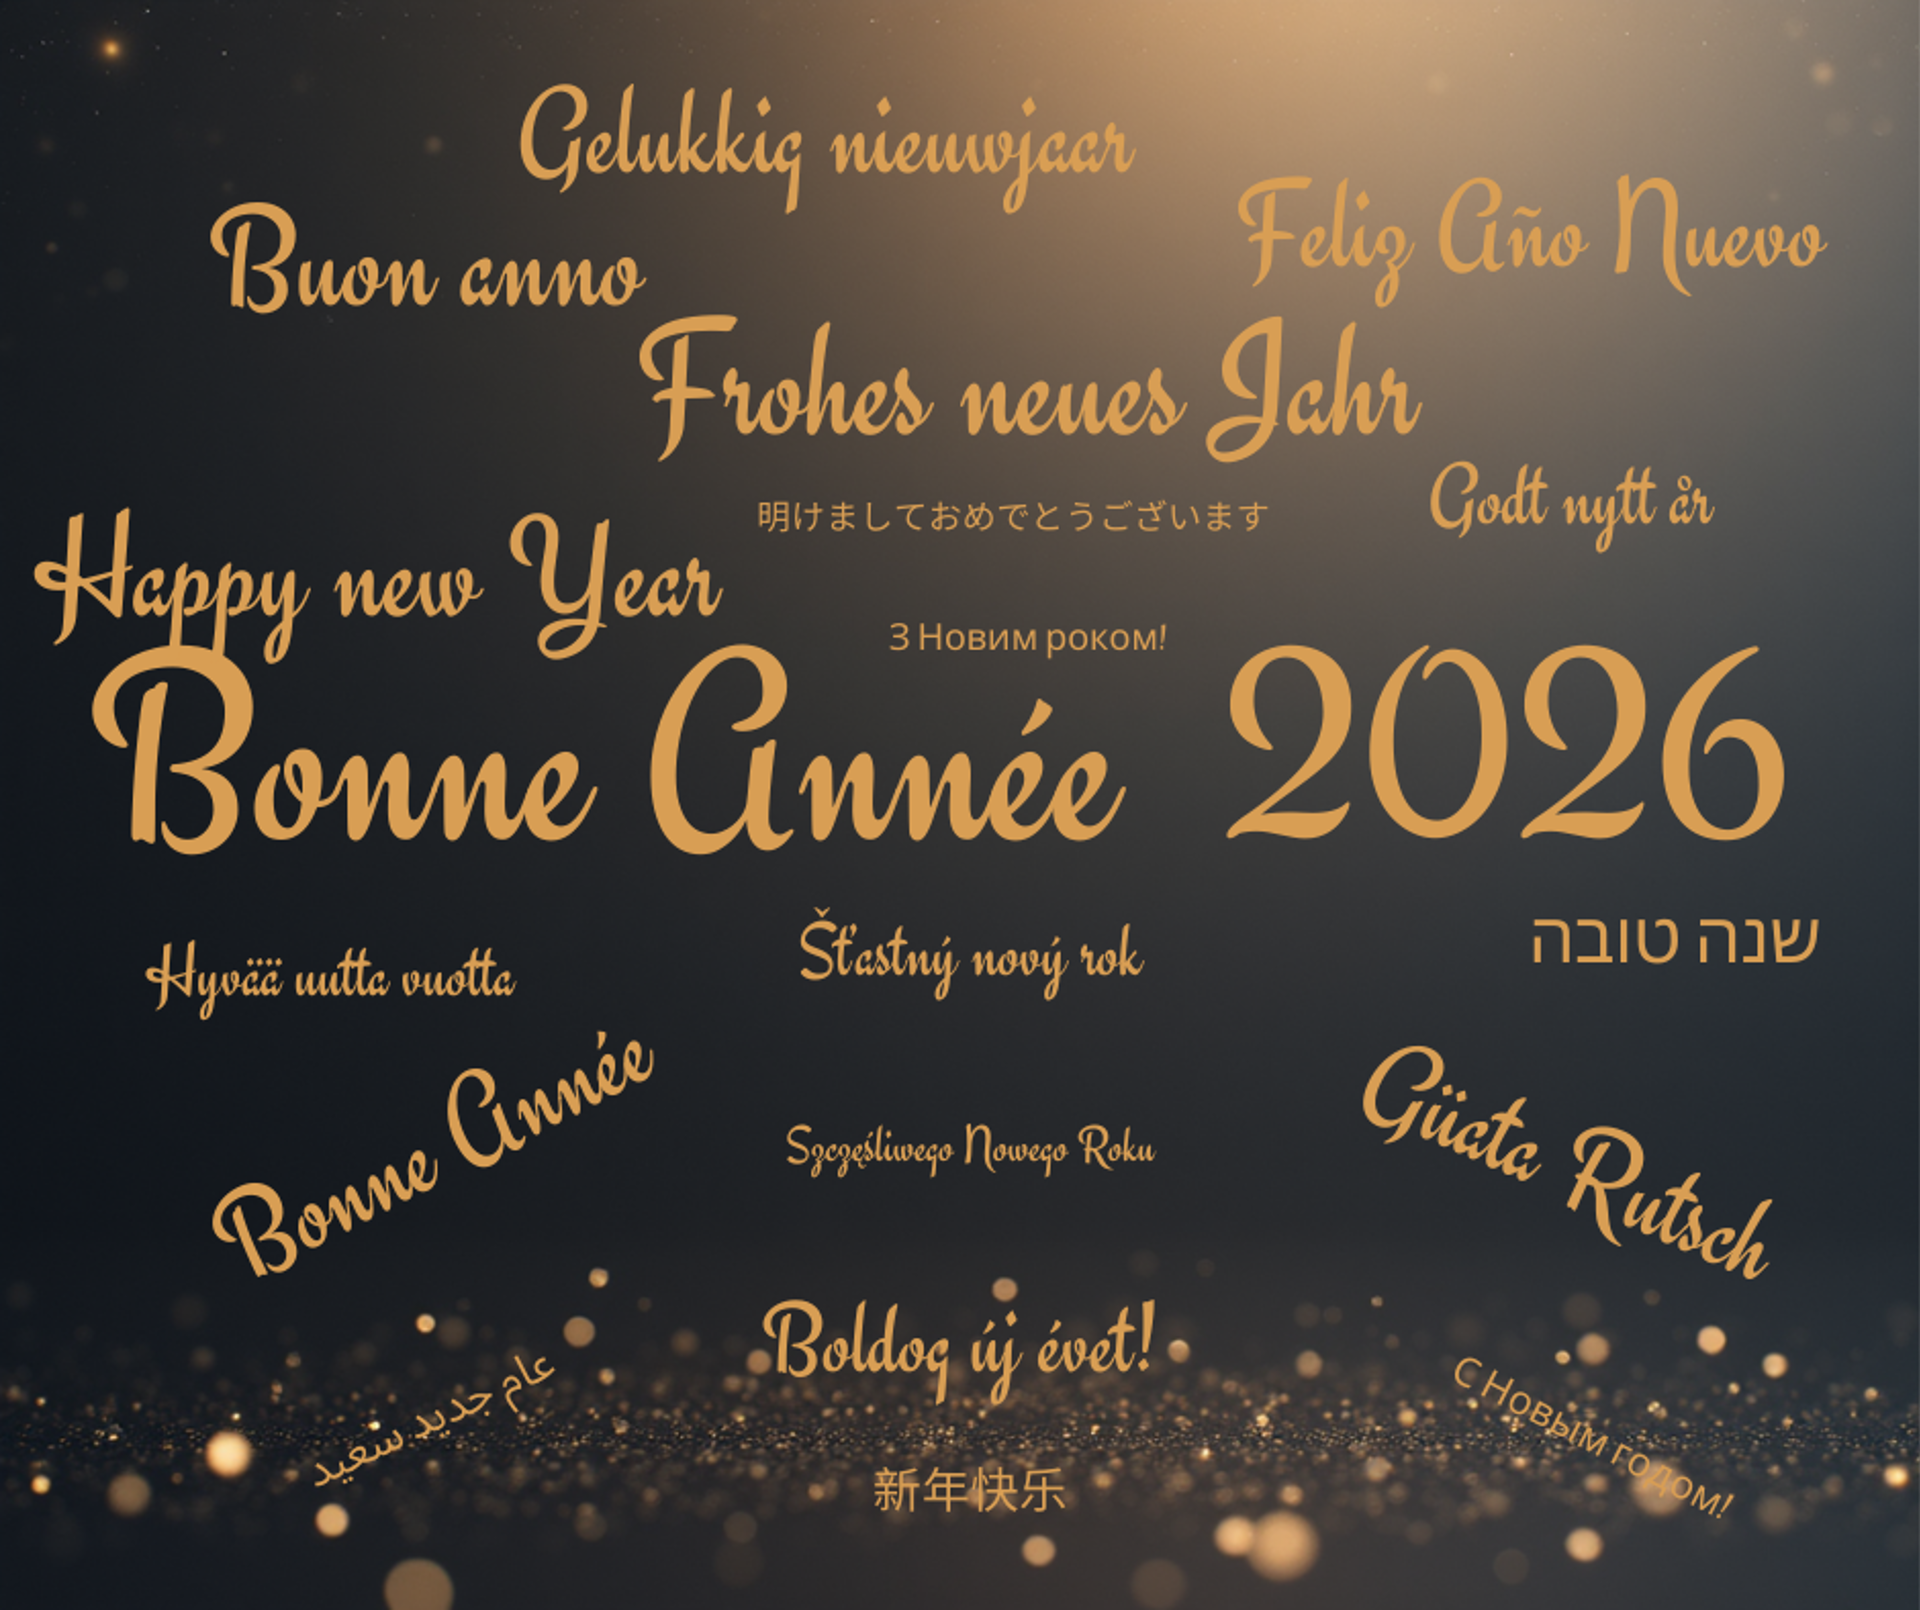 Gelukkig nieuwjaar
Feliz Año Nuevo
Buon anno
Frohes neues Jahr
Godt nytt år
明けましておめでとうございます
Happy new Year
З Новим роком!
Bonne Année 2026
שנה טובה
Šťastný nový rok
Hyvää uutta vuotta
Bonne Année
Güata Rutsch
Szczęśliwego Nowego Roku
Boldog új évet!
عام جديد سعيد
С Новым годом!
新年快乐